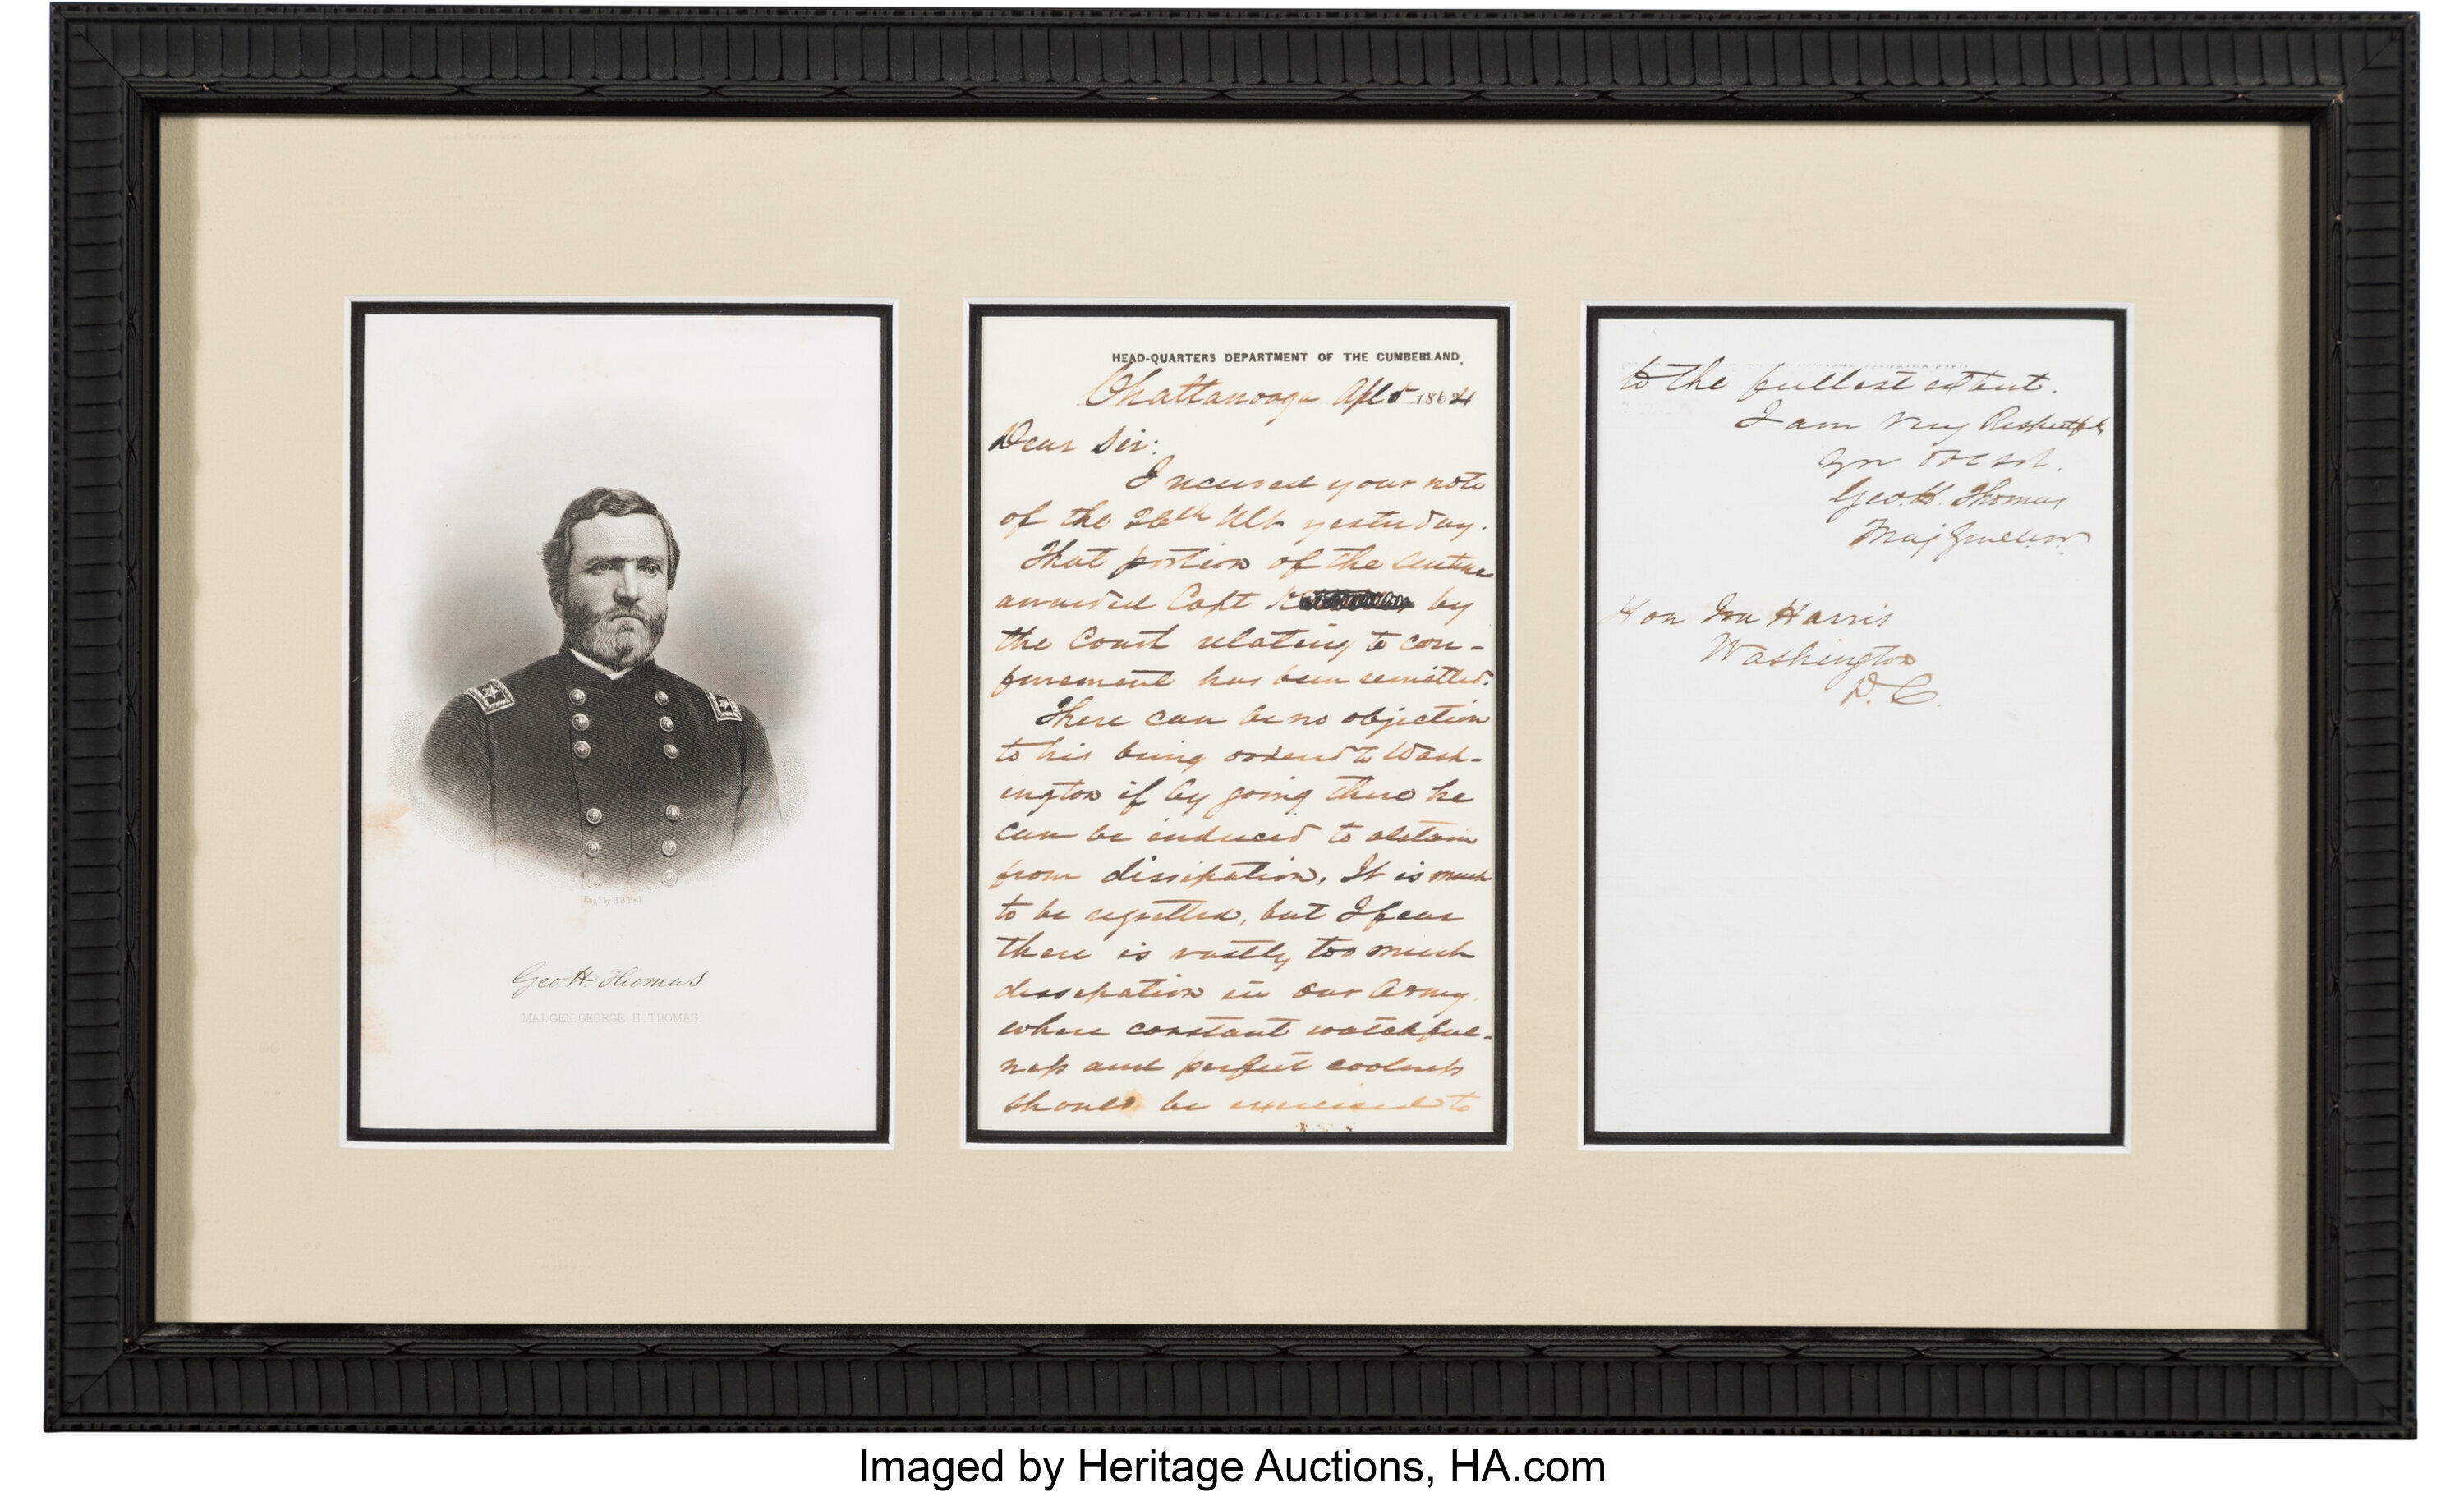 Eng.d by H.B. Hall
Geo. H. Thomas
MAJ. GEN. GEORGE H. THOMAS.
HEAD-QUARTERS DEPARTMENT OF THE CUMBERLAND,
Chattanooga Apl 5 1864
Dear Sir:
I received your note
of the 26th Ult yesterday.
That portion of the sentence
awarded Capt by
the Court relating to con-
finement has been remitted.
There can be no objection
to his being ordered to Wash-
ington if by going there he
can be induced to abstain
from dissipation. It is much
to be regretted, but I fear
there is vastly too much
dissipation in our Army
where constant watchful-
ness and perfect coolness
should be exercised to
to the fullest extent.
I am very Respectfly
Geo. H. Thomas
Maj Genl
Hon Ira Harris
Washington
D. C.
Imaged by Heritage Auctions, HA.com